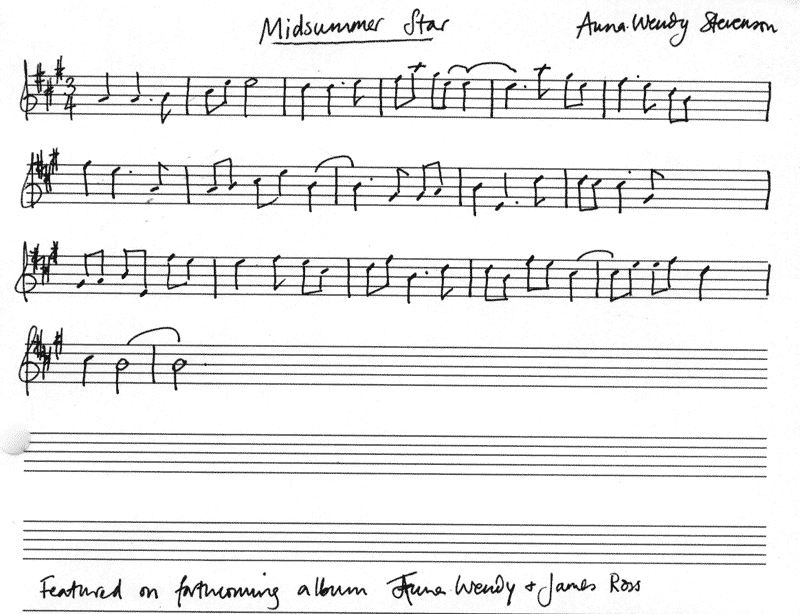 Midsummer Star
Anna-Wendy Stevenson
3
4
Featured on forthcoming album Anna-Wendy + James Ross